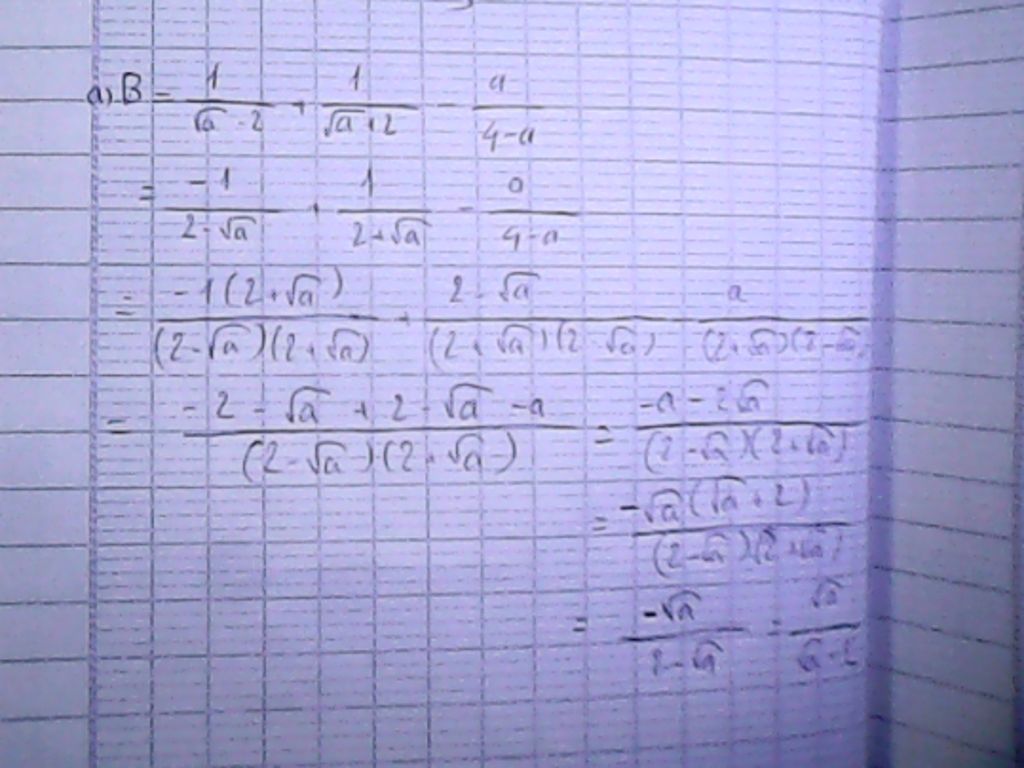 a, B = 1/(√a - 2) + 1/(√a + 2) - a/(4 - a)
= -1/(2 - √a) + 1/(2 + √a) - a/(4 - a)
= -1(2 + √a)/((2 - √a)(2 + √a)) + (2 - √a)/((2 + √a)(2 - √a)) - a/((2 + √a)(2 - √a))
= (-2 - √a + 2 - √a - a)/((2 - √a)(2 + √a)) = (-a - 2√a)/((2 - √a)(2 + √a))
= -√a(√a + 2)/((2 - √a)(2 + √a))
= -√a/(2 - √a) = √a/(√a - 2)